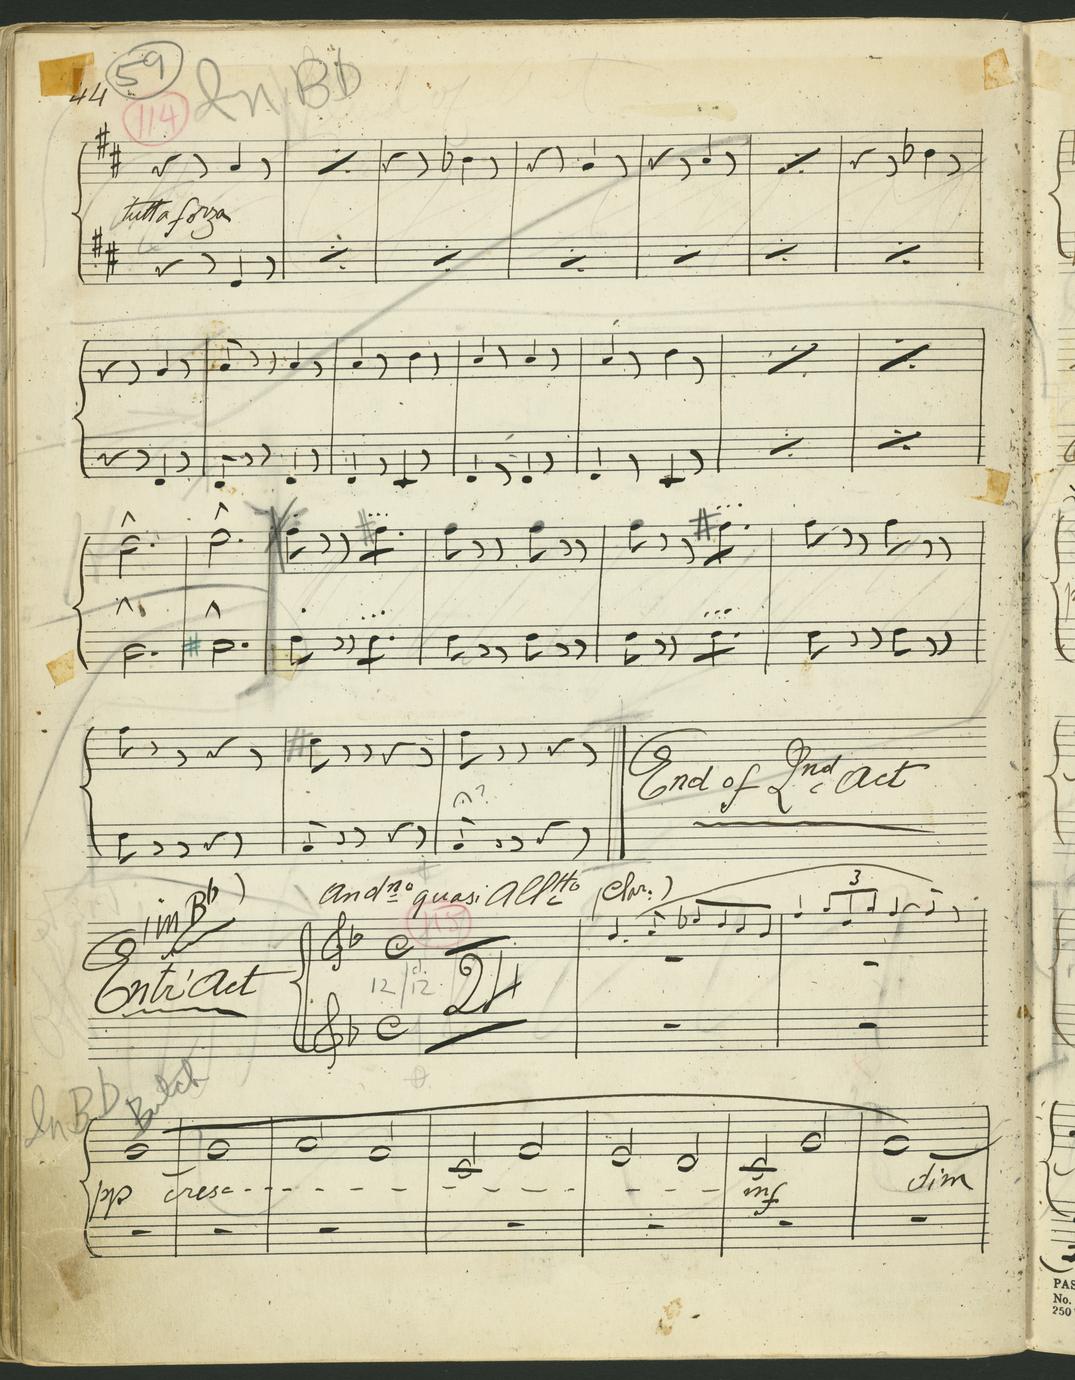 59
In Bb
44
114
tutta forza
End of 2nd Act
(in Bb)
Andno quasi Alltto (Clar:)
115
3
Entr'Act
24
12 12
In Bb
pp cresc mf dim
PAS
No.
250